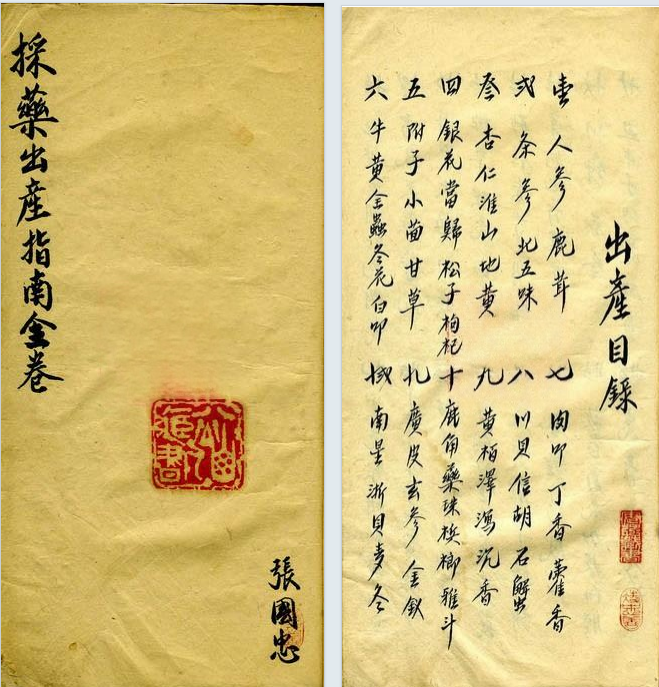 採藥出產指南全卷
張國忠
出產目錄
壹 人參鹿茸
弍 条參北五味
叁 杏仁淮山地黄
四 銀花當歸松子枸杞
五 附子小茴甘草
六 牛黄全蟲冬花白叩
七 肉叩丁香藿香
八 川貝信胡石斛
九 黄栢澤瀉沉香
十 鹿角藥珠梹榔雅斗
廣皮玄參金釵
南星浙貝麦冬